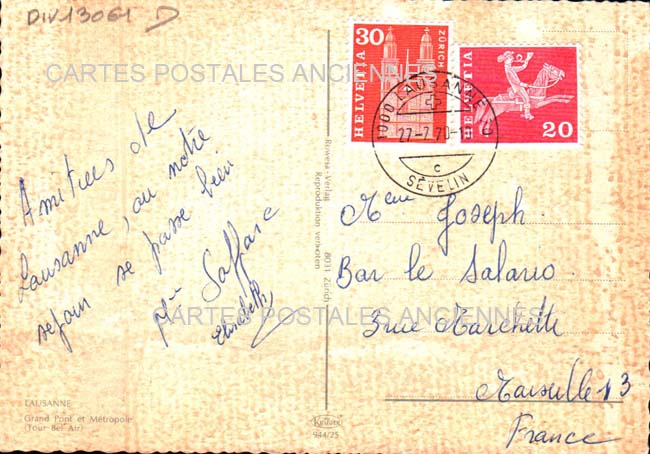 DIV13061 D
CARTES POSTALES ANCIENNES
Amitiés de
Lausanne, ou notre
sejour se passe bien
Mme Saffare
Elisabeth
LAUSANNE
Grand Pont et Métropole
(Tour Bel Air)
Rowesa-Verlag 8031 Zürich
Reproduktion verboten
944/25
30
HELVETIA
ZÜRICH
HELVETIA
20
1000 LAUSANNE
27-7.70-1
C
SÉVELIN
Mme Joseph
Bar le Salario
3 rue Marchetti
Marseille 13
France
CARTES POSTALES ANCIENNES